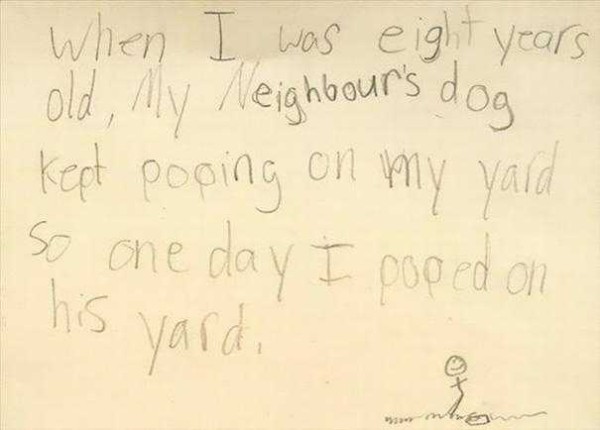 When I was eight years
old, My Neighbour's dog
kept pooping on my yard
so one day I pooped on
his yard.